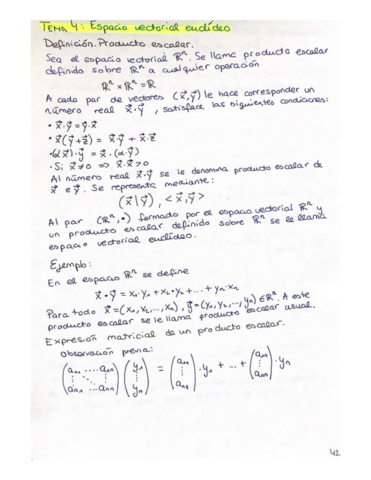 TEMA 4: Espacio vectorial euclídeo
Definición. Producto escalar.
Sea el espacio vectorial ℝⁿ. Se llama producto escalar
definido sobre ℝⁿ a cualquier operación
ℝⁿ × ℝⁿ = ℝ
A cada par de vectores (x⃗,y⃗) le hace corresponder un
número real x⃗·y⃗, satisface las siguientes condiciones:
• x⃗·y⃗ = y⃗·x⃗
• x⃗(y⃗+z⃗) = x⃗·y⃗ + x⃗·z⃗
• (α x⃗)·y⃗ = x⃗·(α·y⃗)
• Si x⃗≠0 ⇒ x⃗·x⃗>0
Al número real x⃗·y⃗ se le denomina producto escalar de
x⃗ e y⃗. Se representa mediante:
(x⃗|y⃗), <x⃗,y⃗>
Al par (ℝⁿ,•) formado por el espacio vectorial ℝⁿ y
un producto escalar definido sobre ℝⁿ se le llama
espacio vectorial euclídeo.
Ejemplo:
En el espacio ℝⁿ se define
x⃗·y⃗ = x₁·y₁ + x₂·y₂ + ... + yₙ·xₙ
Para todo x⃗=(x₁,x₂,...,xₙ), y⃗=(y₁,y₂,...,yₙ) ∈ ℝⁿ. A este
producto escalar se le llama producto escalar usual.
Expresión matricial de un producto escalar.
Observación previa:
(a₁₁ ... a₁ₙ) (y₁) = (a₁₁)·y₁ + ... + (a₁ₙ)·yₙ
(⋮ ⋱ ⋮) (⋮) (⋮) (⋮)
(aₙ₁ ... aₙₙ) (yₙ) (aₙ₁) (aₙₙ)
42